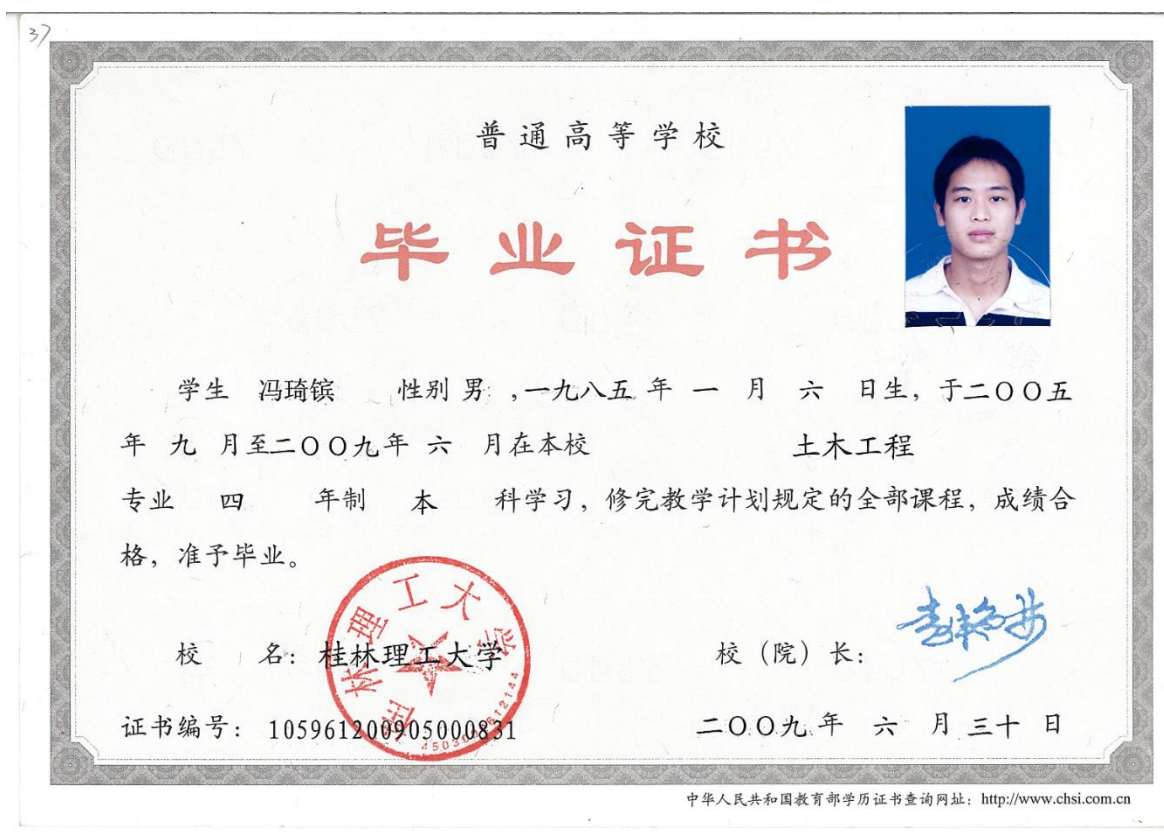 37
普通高等学校
毕业证书
学生 冯琦镔 性别 男 ,一九八五 年 一 月 六 日生, 于二〇〇五
年 九 月至二〇〇九年 六 月在本校 土木工程
专业 四 年制 本 科学习, 修完教学计划规定的全部课程, 成绩合
格, 准予毕业。
桂林理工大学
校 名: 桂林理工大学 校（院）长:
证书编号: 105961200905000831 二〇〇九年 六 月 三十 日
中华人民共和国教育部学历证书查询网址: http://www.chsi.com.cn